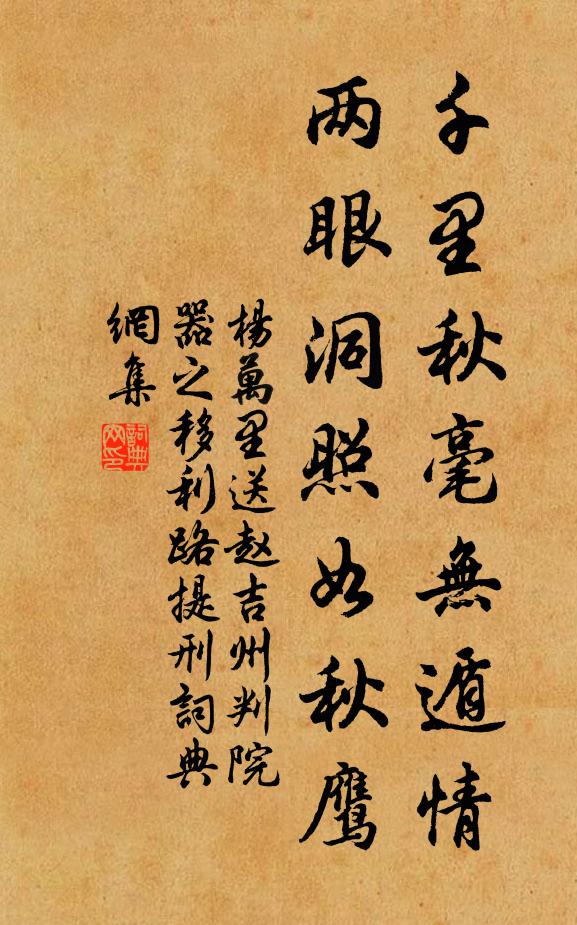 千里秋毫無遁情
两眼洞照如秋鹰
楊萬里送赵吉州判院
器之移利路提刑詞典
網集
詞典
网印